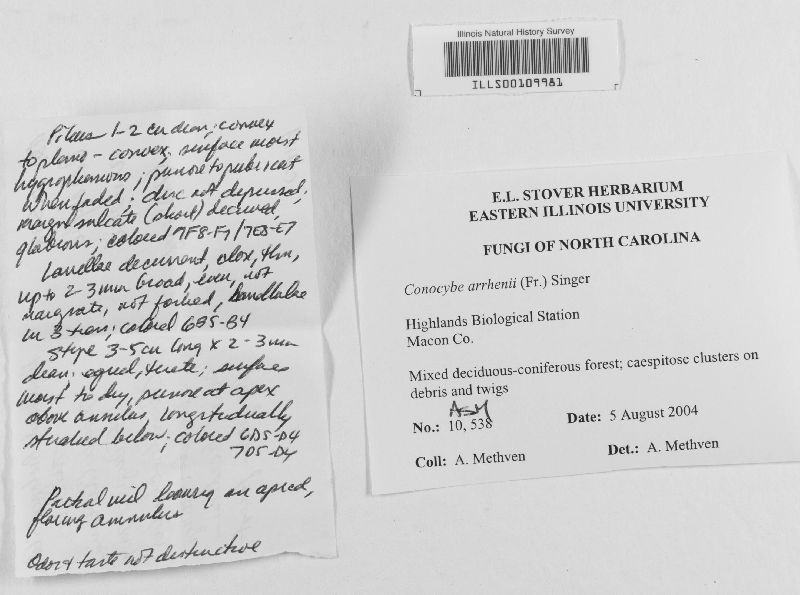 Illinois Natural History Survey
ILLS00109981
E.L. STOVER HERBARIUM
EASTERN ILLINOIS UNIVERSITY
FUNGI OF NORTH CAROLINA
Conocybe arrhenii (Fr.) Singer
Highlands Biological Station
Macon Co.
Mixed deciduous-coniferous forest; caespitose clusters on
debris and twigs
ASM
No.: 10, 538 Date: 5 August 2004
Coll: A. Methven Det.: A. Methven
Pileus 1-2 cm diam; convex
to plano-convex; surface moist
hygrophanous; pruinose to pubescent
when faded; disc not depressed;
margin sulcate (short) decurved,
glabrous; colored 7F8-F7/7E8-E7
Lamellae decurrent, close, thin,
up to 2-3 mm broad, even, not
marginate, not forked, lamellulae
in 3 tiers; colored 6B5-B4
Stipe 3-5 cm long x 2-3 mm
diam. equal, terete; surface
moist to dry, pruinose at apex
above annulus, longitudinally
striated below; colored 6D5-D4
7D5-D4
Partial veil leaving an apical,
flaring annulus
Odor & taste not distinctive